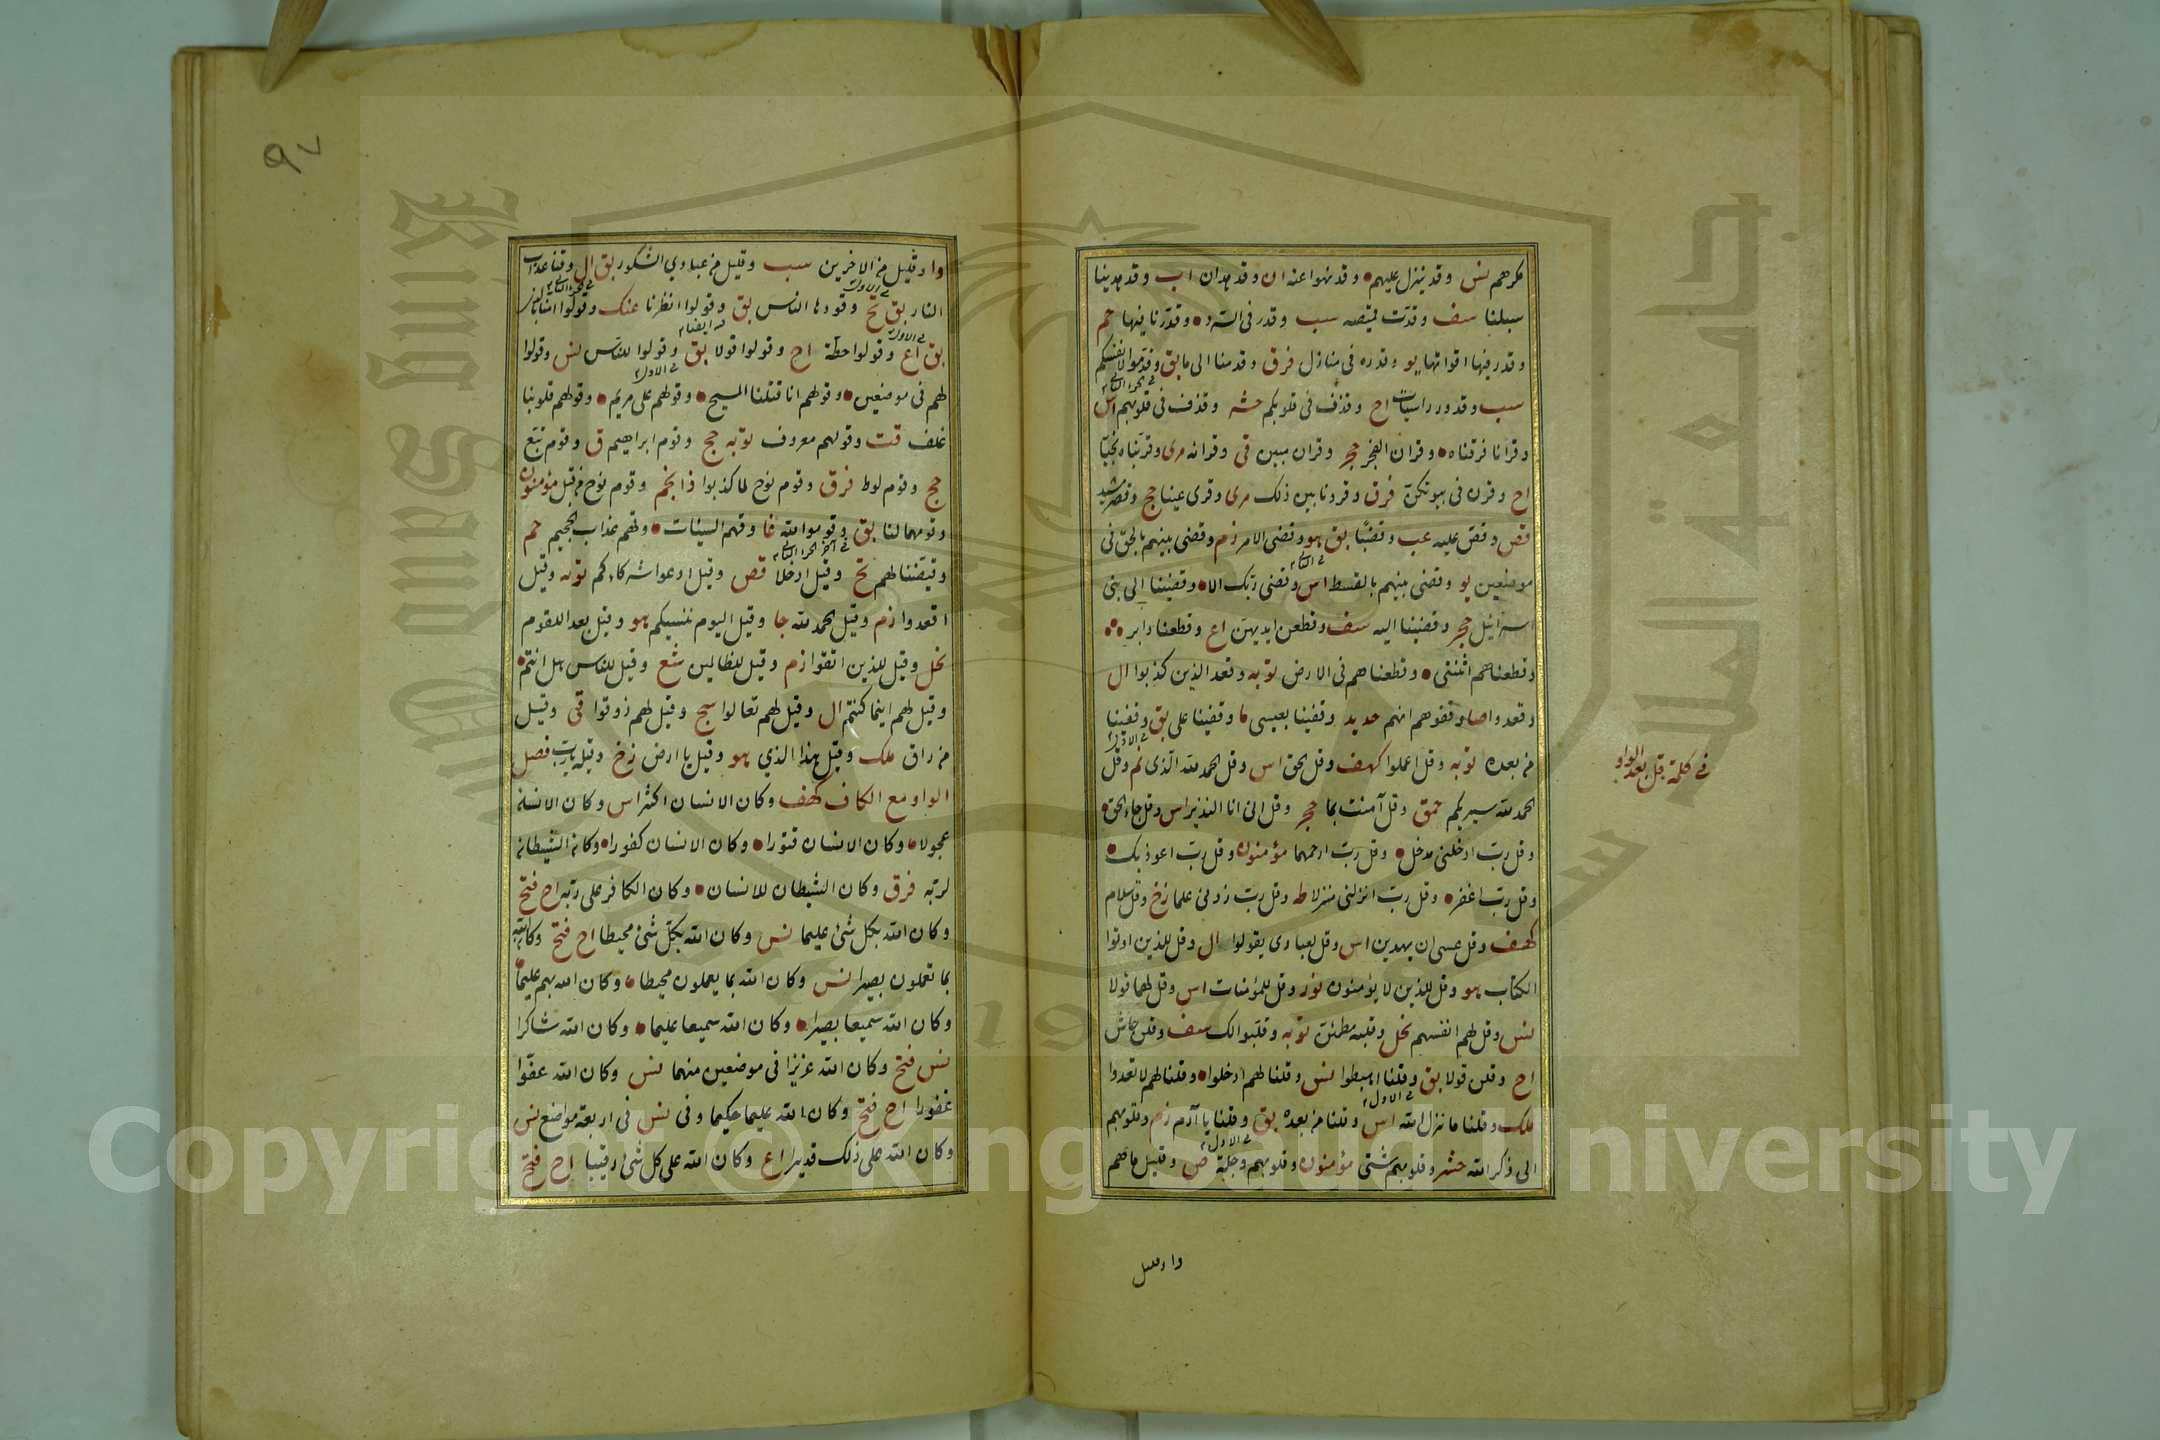 مكرهم نس وقد ينزل عليهم وقد نهوا عنه ان وقد هدان اب وقد هدينا
سبلنا سف وقدت قميصه سب وقدر في السرد وقدرنا فيها حم
وقدر فيها اقواتها يو وقدره في منازل فرق وقدمنا الى ما بق وقدموا لانفسكم
سب وقدور راسيات اح وقذف في قلوبكم حشر وقذف في قلوبهم اس
وقرآنا فرقناه وقرآن الفجر حجر وقرآن مبين ق وقرآنه مرى وقربناه نجيا
اح وقرن في بيوتكن فرق وقرونا بين ذلك مرى وقرى عينا حج وقصر مشيد
قص وقص عليه عب وقضبا بق هو وقضى الامر زم وقضى بينهم بالحق في
موضعين يو وقضى بينهم بالقسط اس وقضى ربك الا وقضينا الى بنى
اسرائيل حجر وقضينا اليه سف وقطعن ايديهن اع وقطعنا دابر
وقطعناهم اثنتى وقطعناهم في الارض توبه وقعد الذين كذبوا ال
وقعدوا صا وقفوهم انهم حديد وقفينا بعيسى ما وقفينا على بق وقفينا
من بعده توبه وقل اعملوا كهف وقل الحق اس وقل الحمد لله الذى نم وقل
الحمد لله سيريكم حمق وقل آمنت بما حجر وقل انى انا النذير اس وقل جاء الحق
وقل رب ادخلنى مدخل وقل رب ارحمهما مؤمنون وقل رب اعوذ بك
وقل رب اغفر وقل رب انزلنى منزلا طه وقل رب زدنى علما زخ وقل سلام
كهف وقل عسى ان يهدين اس وقل لعبادى يقولوا ال وقل للذين اوتوا
الكتاب هو وقل للذين لا يؤمنون نور وقل للمؤمنات اس وقل لهما قولا
نس وقل لهم انفسهم نحل وقلبه مطمئن توبه وقلبوا لك سف وقلن حاش
اح وقلن قولا بق وقلنا اهبطوا نس وقلنا لهم ادخلوا وقلنا لهم لا تعدوا
ملك وقلنا ما نزل الله اس وقلنا من بعده بق وقلنا يا آدم زم وقلوبهم
الى ذكر الله حشر وقلوبهم شتى مؤمنون وقلوبهم وجلة ص وقليل ما هم
في كلمة قل بعد الواو
وا وقليل
٩٧
وا وقليل من الاخرين سب وقليل من عبادي الشكور بق ال وقنا عذاب
النار بق تح وقودها الناس بق وقولوا انظرنا عنك وقولوا امنا بالذى
بق اع وقولوا حطة اح وقولوا قولا بق وقولوا للناس نس وقولوا
لهم في موضعين وقولهم انا قتلنا المسيح وقولهم على مريم وقولهم قلوبنا
غلف قت وقولهم معروف توبه حج وقوم ابراهيم ق وقوم تبع
حج وقوم لوط فرق وقوم نوح لما كذبوا ذا نجم وقوم نوح من قبل مؤمنون
وقومهما لنا بق وقوموا لله غا وقهم السيئات وقهم عذاب الجحيم حم
وقيضنا لهم تح وقيل ادخلا قص وقيل ادعوا شركاءكم توبه وقيل
اقعدوا زم وقيل الحمد لله جا وقيل اليوم ننسيكم هو وقيل بعدا للقوم
نحل وقيل للذين اتقوا زم وقيل للظالمين شع وقيل للناس هل انتم
وقيل لهم اينما كنتم ال وقيل لهم تعالوا سج وقيل لهم ذوقوا ق وقيل
من راق ملك وقيل هذا الذي هو وقيل يا ارض زخ وقيله يا رب فصل
الواو مع الكاف كهف وكان الانسان اكثر اس وكان الانسان
عجولا وكان الانسان قتورا وكان الانسان كفورا وكان الشيطان
لربه فرق وكان الشيطان للانسان وكان الكافر على ربه اح فتح
وكان الله بكل شئ عليما نس وكان الله بكل شئ محيطا اح فتح وكان الله
بما تعملون بصيرا نس وكان الله بما يعملون محيطا وكان الله بهم عليما
وكان الله سميعا بصيرا وكان الله سميعا عليما وكان الله شاكرا
نس فتح وكان الله عزيزا في موضعين منهما نس وكان الله عفوا
غفورا اح فتح وكان الله عليما حكيما وفى نس فى اربعة مواضع نس
وكان الله على ذلك قديرا اع وكان الله على كل شئ رقيبا اح فتح
King Saud University
جامعة الملك سعود
1957
Copyright © King Saud University